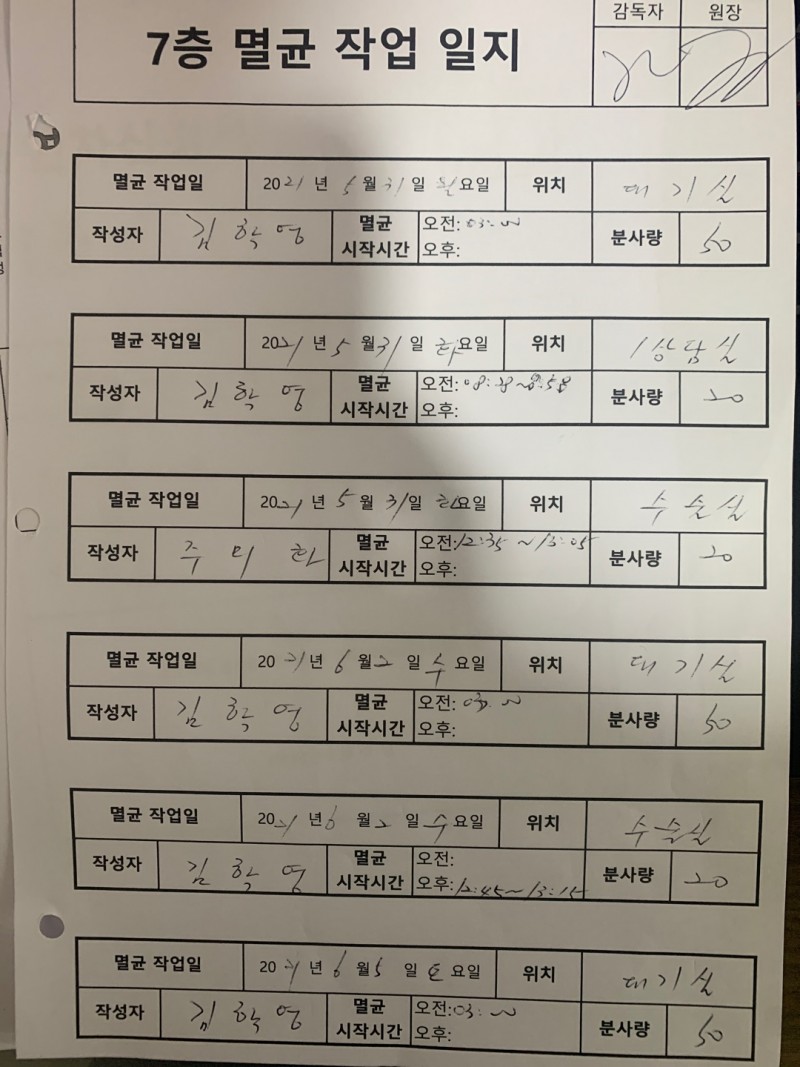 감독자 원장
7층 멸균 작업 일지
멸균 작업일 2021년 5월 31일 월요일 위치 대기실
작성자 김학영 멸균 시작시간 오전: 03:00 분사량 50
오후:
멸균 작업일 2021년 5월 31일 화요일 위치 1상담실
작성자 김학영 멸균 시작시간 오전: 08:38~8:58 분사량 20
오후:
멸균 작업일 2021년 5월 31일 화요일 위치 수술실
작성자 주미화 멸균 시작시간 오전: 12:35 ~ 13:05 분사량 20
오후:
멸균 작업일 2021년 6월 2일 수요일 위치 대기실
작성자 김학영 멸균 시작시간 오전: 03:00 분사량 50
오후:
멸균 작업일 2021년 6월 2일 수요일 위치 수술실
작성자 김학영 멸균 시작시간 오전: 분사량 20
오후: 12:45~13:15
멸균 작업일 2021년 6월 5일 토요일 위치 대기실
작성자 김학영 멸균 시작시간 오전: 03:00 분사량 50
오후: